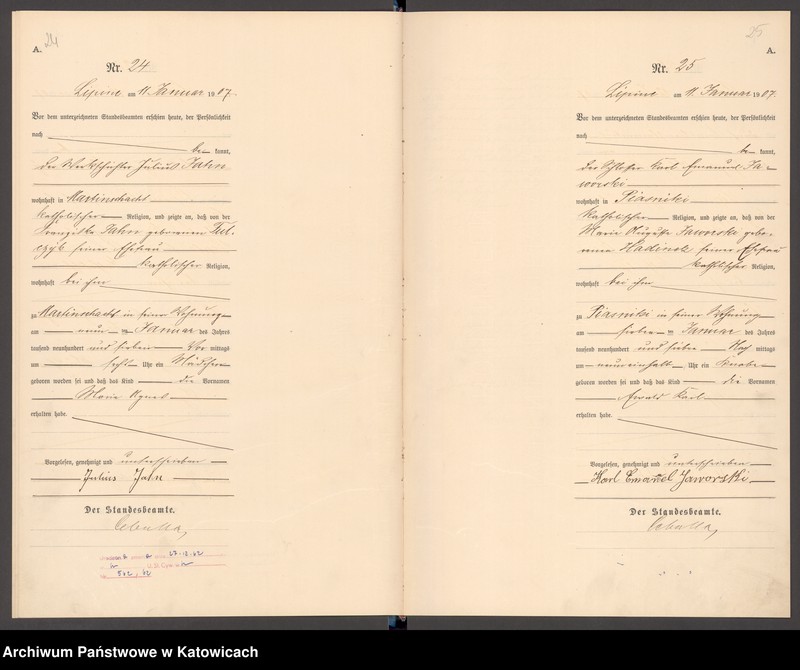 24
A.
Nr. 24
Lipine am 11. Januar 1907.
Vor dem unterzeichneten Standesbeamten erschien heute, der Persönlichkeit
nach
be kannt,
der Julius Jahn
wohnhaft in Martinschacht
katholischer Religion, und zeigte an, daß von der
Jahn geborenen
seiner Ehefrau
katholischer Religion,
wohnhaft bei ihm
zu Martinschacht in seiner Wohnung
am neun ten Januar des Jahres
tausend neunhundert und sieben Vor mittags
um sechs Uhr ein Mädchen
geboren worden sei und daß das Kind die Vornamen
Maria Agnes
erhalten habe.
Vorgelesen, genehmigt und unterschrieben
Julius Jahn
Der Standesbeamte.
Cebulla
23.12.62
562/62
25
A.
Nr. 25
Lipine am 11. Januar 1907.
Vor dem unterzeichneten Standesbeamten erschien heute, der Persönlichkeit
nach
be kannt,
der Schlosser Karl Emanuel Ja-
worski
wohnhaft in Piasniki
katholischer Religion, und zeigte an, daß von der
Maria Auguste Jaworski gebo-
renen seiner Ehefrau
katholischer Religion,
wohnhaft bei ihm
zu Piasniki in seiner Wohnung
am sieben ten Januar des Jahres
tausend neunhundert und sieben Nach mittags
um neuneinhalb Uhr ein Knabe
geboren worden sei und daß das Kind die Vornamen
Ewald Karl
erhalten habe.
Vorgelesen, genehmigt und unterschrieben
Karl Emanuel Jaworski
Der Standesbeamte.
Cebulla
Archiwum Państwowe w Katowicach